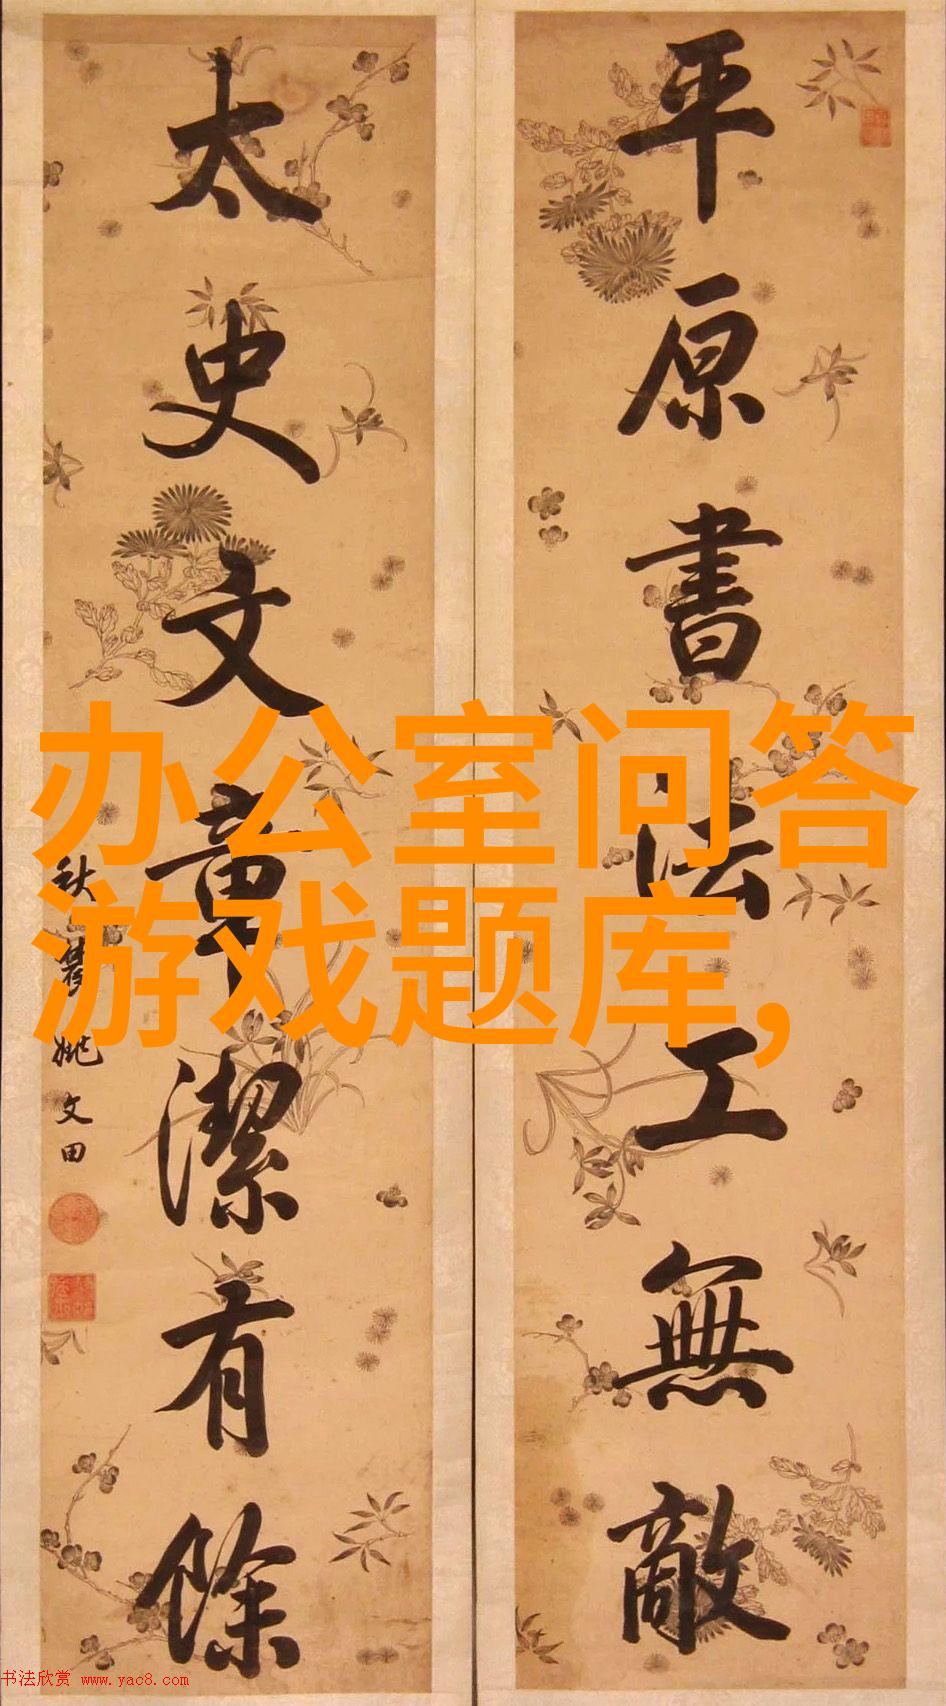 平原書法工無敵
太史文章潔有餘
秋農姚文田
办公室问答
游戏题库,
书法欣赏 www.yac8.com